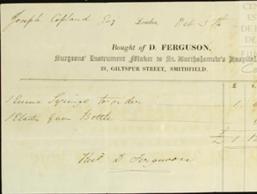 Joseph Copland Esq London, Oct 3th
Bought of D. FERGUSON,
Surgeons' Instrument Maker to St. Bartholomew's Hospital
21, GILTSPUR STREET, SMITHFIELD.
1 Enema Syringe to order
1 Elastic Gum Bottle
D Ferguson